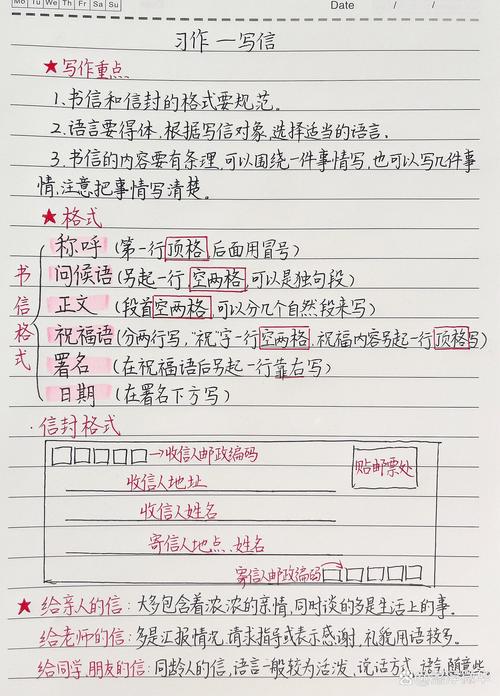 Mo Tu We Th Fr Sa Su
Date / /
习作一写信
★写作重点
1.书信和信封的格式要规范。
2.语言要得体,根据写信对象,选择适当的语言.
3.书信的内容要有条理,可以围绕一件事情写,也可以写几件事
情,注意把事情写清楚。
★格式
书信格式
称呼(第一行顶格,后面用冒号)
问候语(另起一行空两格,可以是独句段)
正文(段首空两格,可以分几个自然段来写)
祝福语(分两行写,"祝"字一行空两格,祝福内容另起一行顶格写)
署名(在祝福语后另起一行靠右写)
日期(在署名下方写)
·信封格式
→收信人邮政编码
贴邮票处
收信人地址
收信人姓名
寄信人地点、姓名
寄信人邮政编码
★给亲人的信:大多包含着浓浓的亲情,同时谈的多是生活上的事.
给老师的信:多是汇报情况,请求指导或表示感谢,礼貌用语较多。
给同学、朋友的信:同龄人的信,语言一般较为活泼,说话方式、语言,随意些.